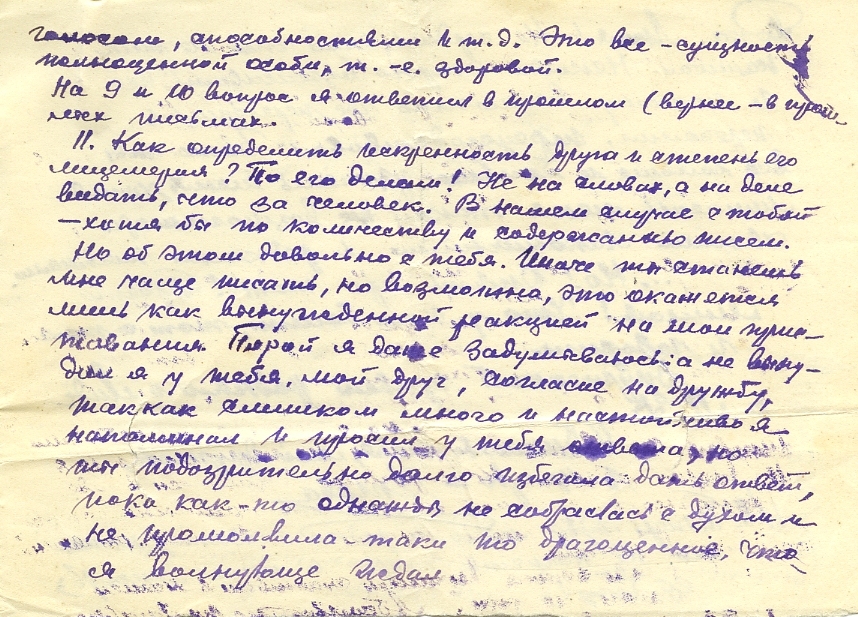 голосом, способностями и т.д. Это все – сущность
полноценной особи, т.-е. здоровой.
На 9 и 10 вопрос я ответил в прошлом (вернее – в прош-
лых письмах.
11. Как определить искренность друга и степень его
лицемерия? По его делам! Не на словах, а на деле
видать, что за человек. В нашем случае с тобой
– хотя бы по количеству и содержанию писем.
Но об этом довольно с тебя. Иначе ты станешь
мне чаще писать, но возможно, это окажется
лишь как вынужденной реакцией на мои
тавания. Порой я даже задумываюсь: а не выну-
дил я у тебя, мой друг, согласие на дружбу,
так как слишком много и настойчиво я
напоминал и просил у тебя ответа, но
ты подозрительно долго избегала дать ответ,
пока как-то однажды не собралась с духом и
не промолвила-таки то драгоценное, что
я волнующе ждал